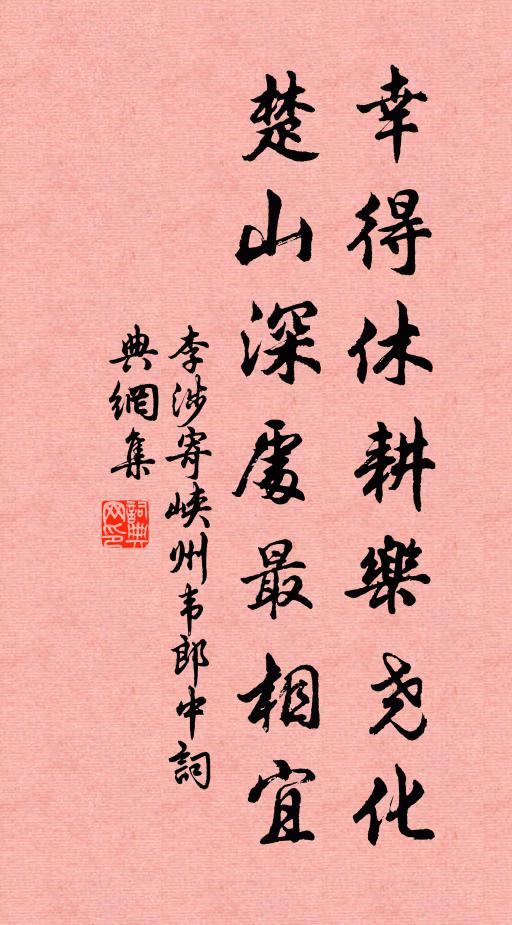 幸得休耕樂尧化
楚山深處最相宜
李涉寄峡州韦郎中詞
典網集
詞典
网印